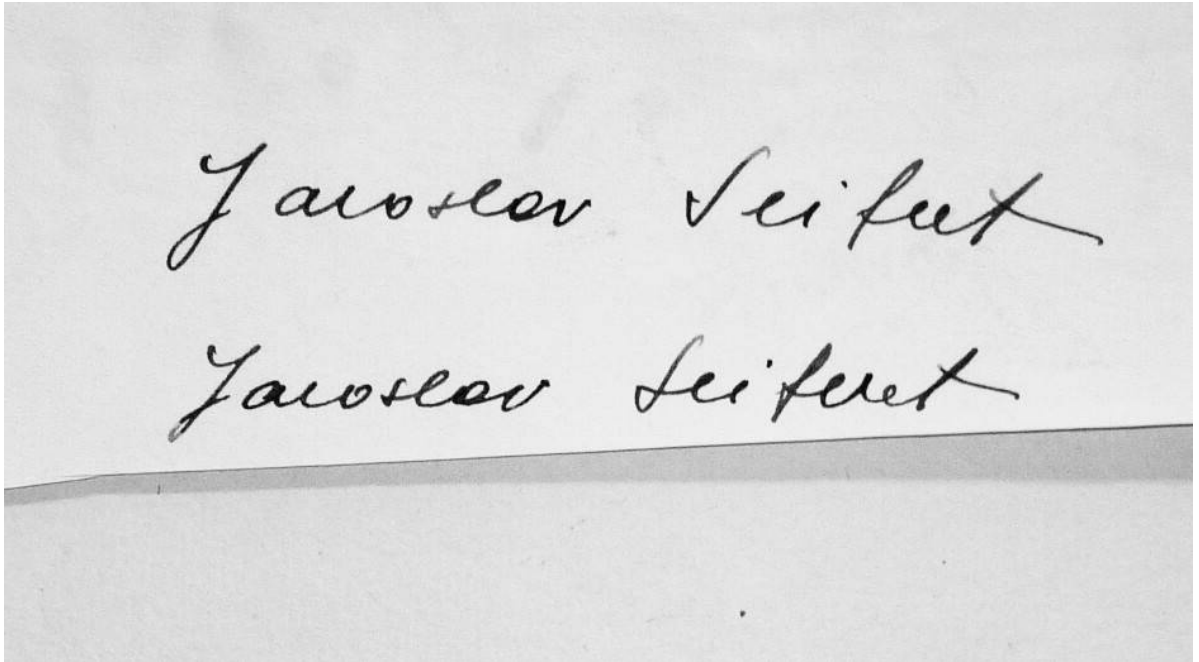 Jaroslav Seifert
Jaroslav Seifert